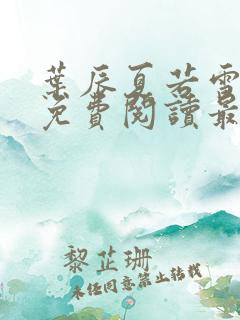 葉辰夏若雪
免費閱讀最
黎芷珊
未經同意禁止轉載